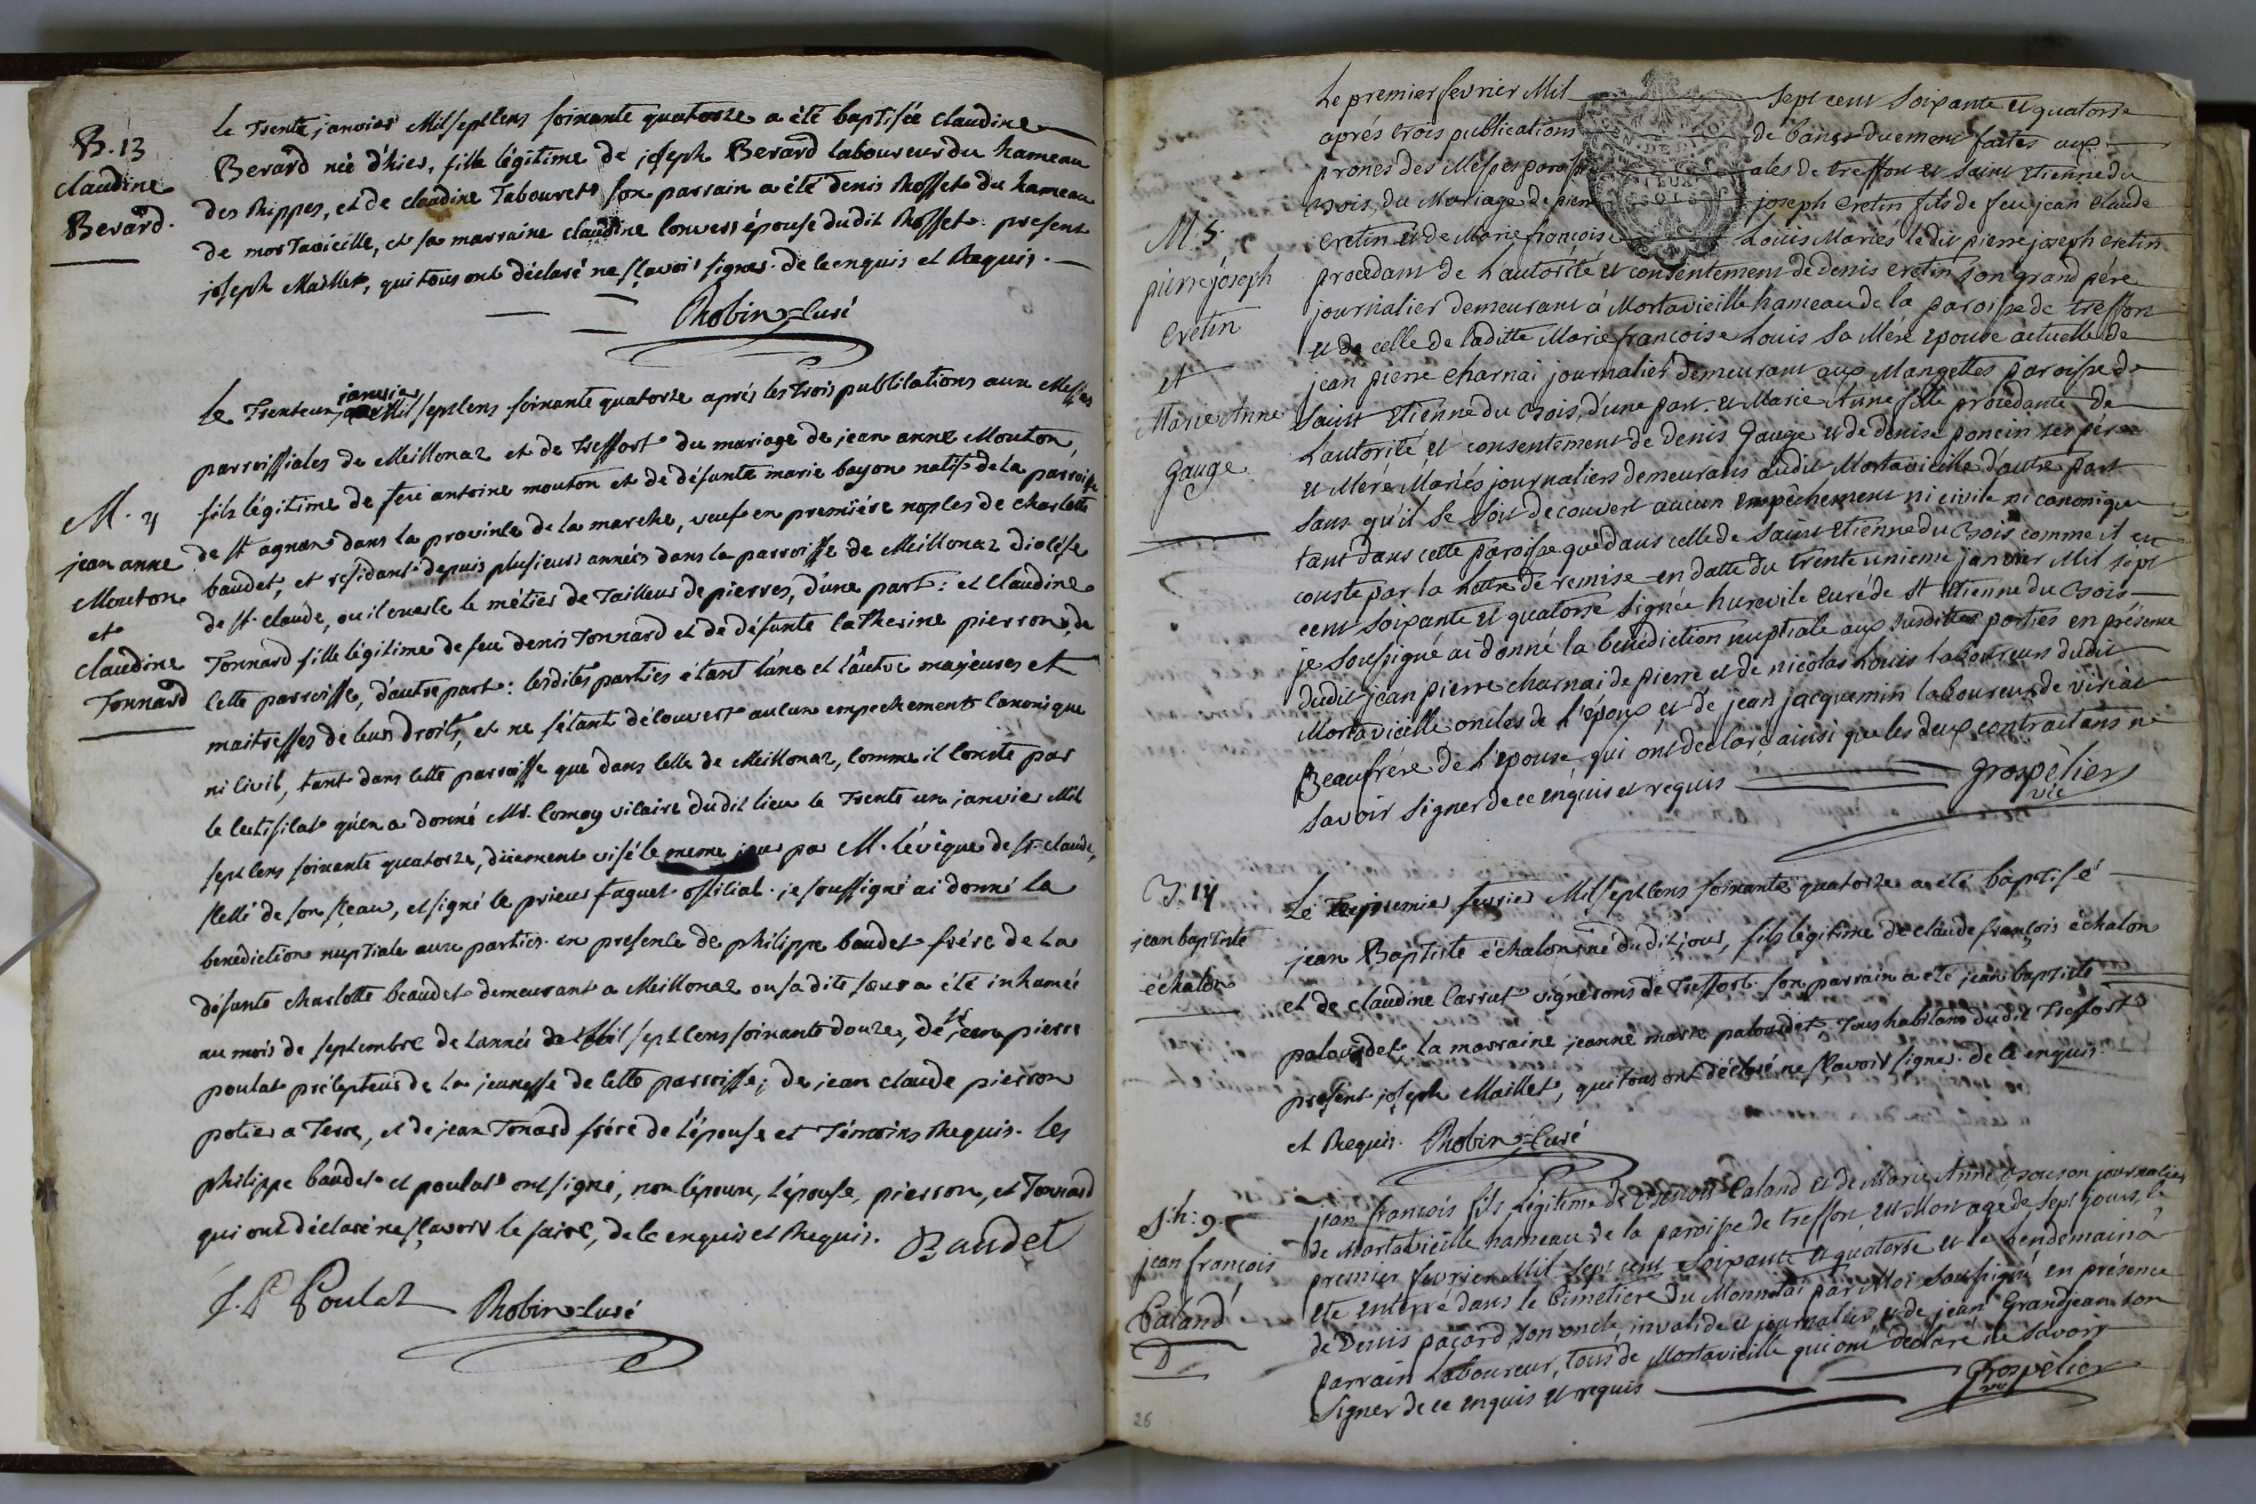 B. 13
claudine
Berard.
le trente janvier Mil sept cens soixante quatorze a été baptisée claudine
Berard née d'hier, fille légitime de joseph Berard laboureur du hameau
des Rippes, et de claudine Tabouret son parrain a été denis Rosset du hameau
de mortavieille, et sa marraine claudine convers épouse dudit Rosset present
joseph Maillet, qui tous ont déclaré ne sçavoir signer de ce enquis et Requis.
Robin, Curé
M. 4
jean anne
Mouton
et
claudine
Tonnard
Le Trente un janvier Mil sept cens soixante quatorze aprés les trois publications aux Messes
parroissiales de Meillonaz et de Treffort du mariage de jean anne Mouton
fils légitime de feu antoine mouton et de défunte marie bayon natif de la parroisse
de st agnan dans la province de la marche, veuf en premiére noples de charlotte
baudet, et residant depuis plusieurs années dans la parroisse de Meillonaz diocése
de st. claude, ou il exerce le métier de Tailleur de pierres, d'une part : et claudine
Tonnard fille légitime de feu denis Tonnard et de défunte catherine pierron, de
cette parroisse, d'autre part : lesdites parties étant l'une et l'autre majeures et
maitresses de leurs droits, et ne s'étant découvert aucun empechement canonique
ni civil, tant dans cette parroisse que dans celle de Meillonaz, comme il conste par
le certificat qu'en a donné Mr. Comoy vicaire dudit lieu le Trente un janvier Mil
sept cens soixante quatorze, düement visé le meme jour par M. l'évèque de st. claude,
scellé de son sceau, et signé le prieur faguet official. je soussigné ai donné la
benediction nuptiale aux parties en presence de philippe baudet frére de la
défunte charlotte beaudet demeurant a Meillonaz ou sa dite sœur a été inhumée
au mois de septembre de l'année Mil sept cens soixante douze, de sr jean pierre
poulat précepteur de la jeunesse de cette parroisse, de jean claude pierron
potier a Terre, et de jean Tonard frére de l'épouse et Témoins Requis. les
philippe baudet et poulat ont signé, non l'époux, l'épouse, pierron, et Tonnard
qui ont déclaré ne sçavoir le faire, de ce enquis et Requis. Baudet
J. P Poulat Robin, Curé
M. 5.
pierre joseph
Cretin
et
Marie Anne
Gauge
Le premier fevrier Mil sept cent soixante et quatorse
aprés trois publications de bancs duement faites aux
prones des Messes paroissiales de treffort et saint Etienne du
Bois, du Mariage de pierre joseph Cretin fils de feu jean Claude
Cretin et de Marie françoise Louis Mariés ledit pierre joseph Cretin
procedant de l'autorité et consentement de denis Cretin son grand pére
journalier demeurant à Mortavieille hameau de la paroisse de treffort
et de celle de laditte Marie françoise Louis sa Mére epouse actuelle de
jean pierre Charnai journalier demeurant aux Mangettes paroisse de
saint Etienne du Bois, d'une part. et Marie Anne fille procedante de
L'autorité et consentement de Denis Gauge et de denise poncin ses pére
et Mére Mariés journaliers demeurans audit Mortavieille d'autre part
sans qu'il se soit decouvert aucun empêchement ni civile ni canonique
tant dans cette paroisse que dans celle de saint Etienne du Bois comme il en
conste par la Lettre de remise en datte du trente unieme janvier Mil sept
cent soixante et quatorse signée hurevile curé de St Etienne du Bois
je soussigné ai donné la bénédiction nuptiale aux susdittes parties en présence
dudit jean pierre charnai de pierre et de nicolas Louis laboureurs dudit
Mortavieille oncles de l'epoux et de jean jacquemin laboureur de viriat
Beaufrére de l'epouse, qui ont declaré ainsi que les deux contractans ne
savoir signer de ce enquis et requis Grospèlier
vic
B. 14
jean baptiste
échalon
Le premier fevrier Mil sept cens soixante quatorze a été baptisé
jean Baptiste échalon né dudit jour, fils légitime de claude françois échalon
et de claudine Carrut vignérons de Treffort son parrain a été jean baptiste
paloudet, la marraine jeanne marie paloudet Tous habitans dudit Treffort
present joseph Maillet, qui tous ont déclaré ne sçavoir signer. de ce enquis
et Requis. Robin, Curé
S. h: 9.
jean françois
Caland
D
jean françois fils légitime de Benoit Caland et de Marie Anne Bouson journaliers
de Mortavieille hameau de la paroisse de treffort, est Mort agé de sept jours, le
premier fevrier Mil sept cent soixante et quatorse et le lendemain a
eté enterré dans le Cimetiere du Monnetai par Moi soussigné en présence
de Denis pacard, son oncle, invalide et journalier et de jean Grandjean son
parrain Laboureur, tous de Mortavieille qui ont declaré ne savoir
signer de ce enquis et requis Grospèlier
vic
26